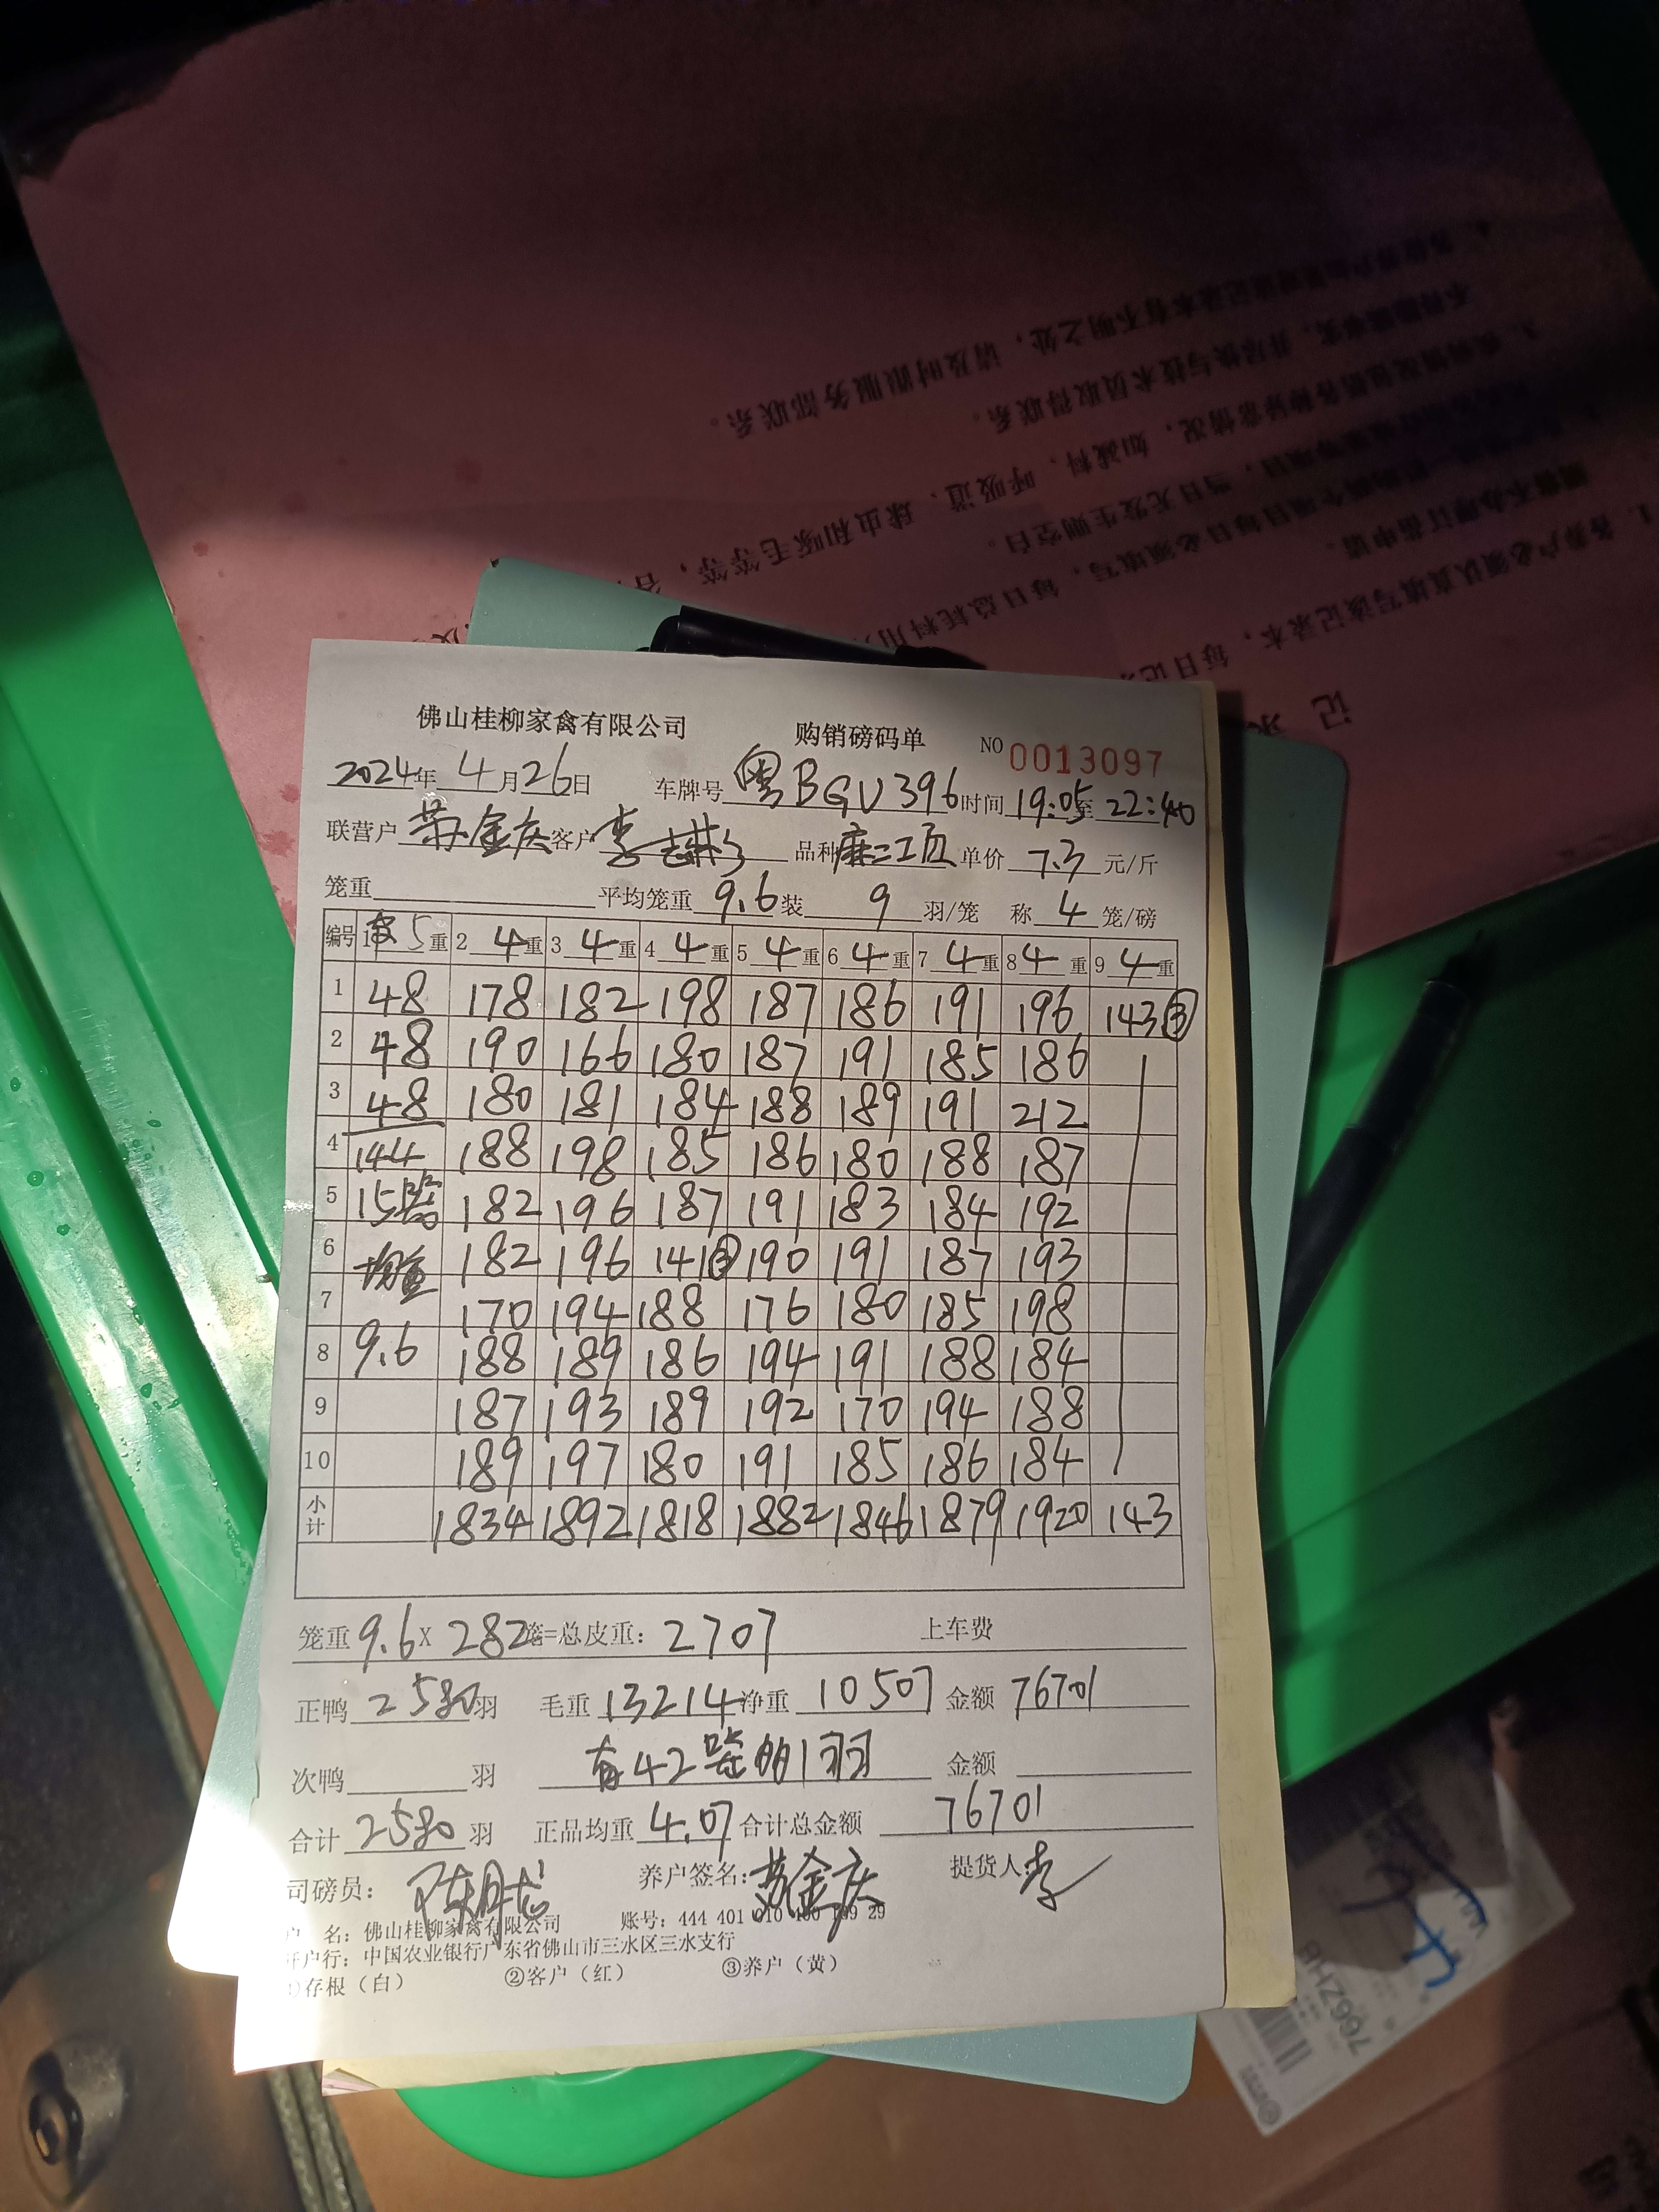 佛山桂柳家禽有限公司 购销磅码单 NO 0013097
2024年 4月26日 车牌号 粤BGU396 时间 19:05至 22:40
联营户 苏金庆 客户 李 品种 麻二工页 单价 7.3 元/斤
笼重 平均笼重 9.6 装 9 羽/笼 称 4 笼/磅
编号 1 5重 2 4重 3 4重 4 4重 5 4重 6 4重 7 4重 8 4重 9 4重
1 48 178 182 198 187 186 191 196 143③
2 48 190 166 180 187 191 185 186
3 48 180 181 184 188 189 191 212
4 144 188 198 185 186 180 188 187
5 15 182 196 187 191 183 184 192
6 均重 182 196 141③ 190 191 187 193
7 170 194 188 176 180 185 198
8 9.6 188 189 186 194 191 188 184
9 187 193 189 192 170 194 188
10 189 197 180 191 185 186 184
小计 1834 1892 1818 1882 1846 1879 1920 143
笼重 9.6 X 282笼=总皮重: 2707 上车费
正鸭 2580 羽 毛重 13214 净重 10507 金额 76701
次鸭 羽 有42笼的1羽 金额
合计 2580 羽 正品均重 4.07 合计总金额 76701
司磅员: 养户签名: 苏金庆 提货人: 李
户 名: 佛山桂柳家禽有限公司 账号: 444 401 010 29
开户行: 中国农业银行广东省佛山市三水区三水支行
①存根(白) ②客户(红) ③养户(黄)
记
1. 各养户必须认真填写该记录本,每日记
每日必须填写,每日总耗料用
当日无发生则空白。
如减料、呼吸道、球虫和啄毛等等,
并尽快与技术员取得联系。
不明之处,请及时跟服务部联系。
766ZHB